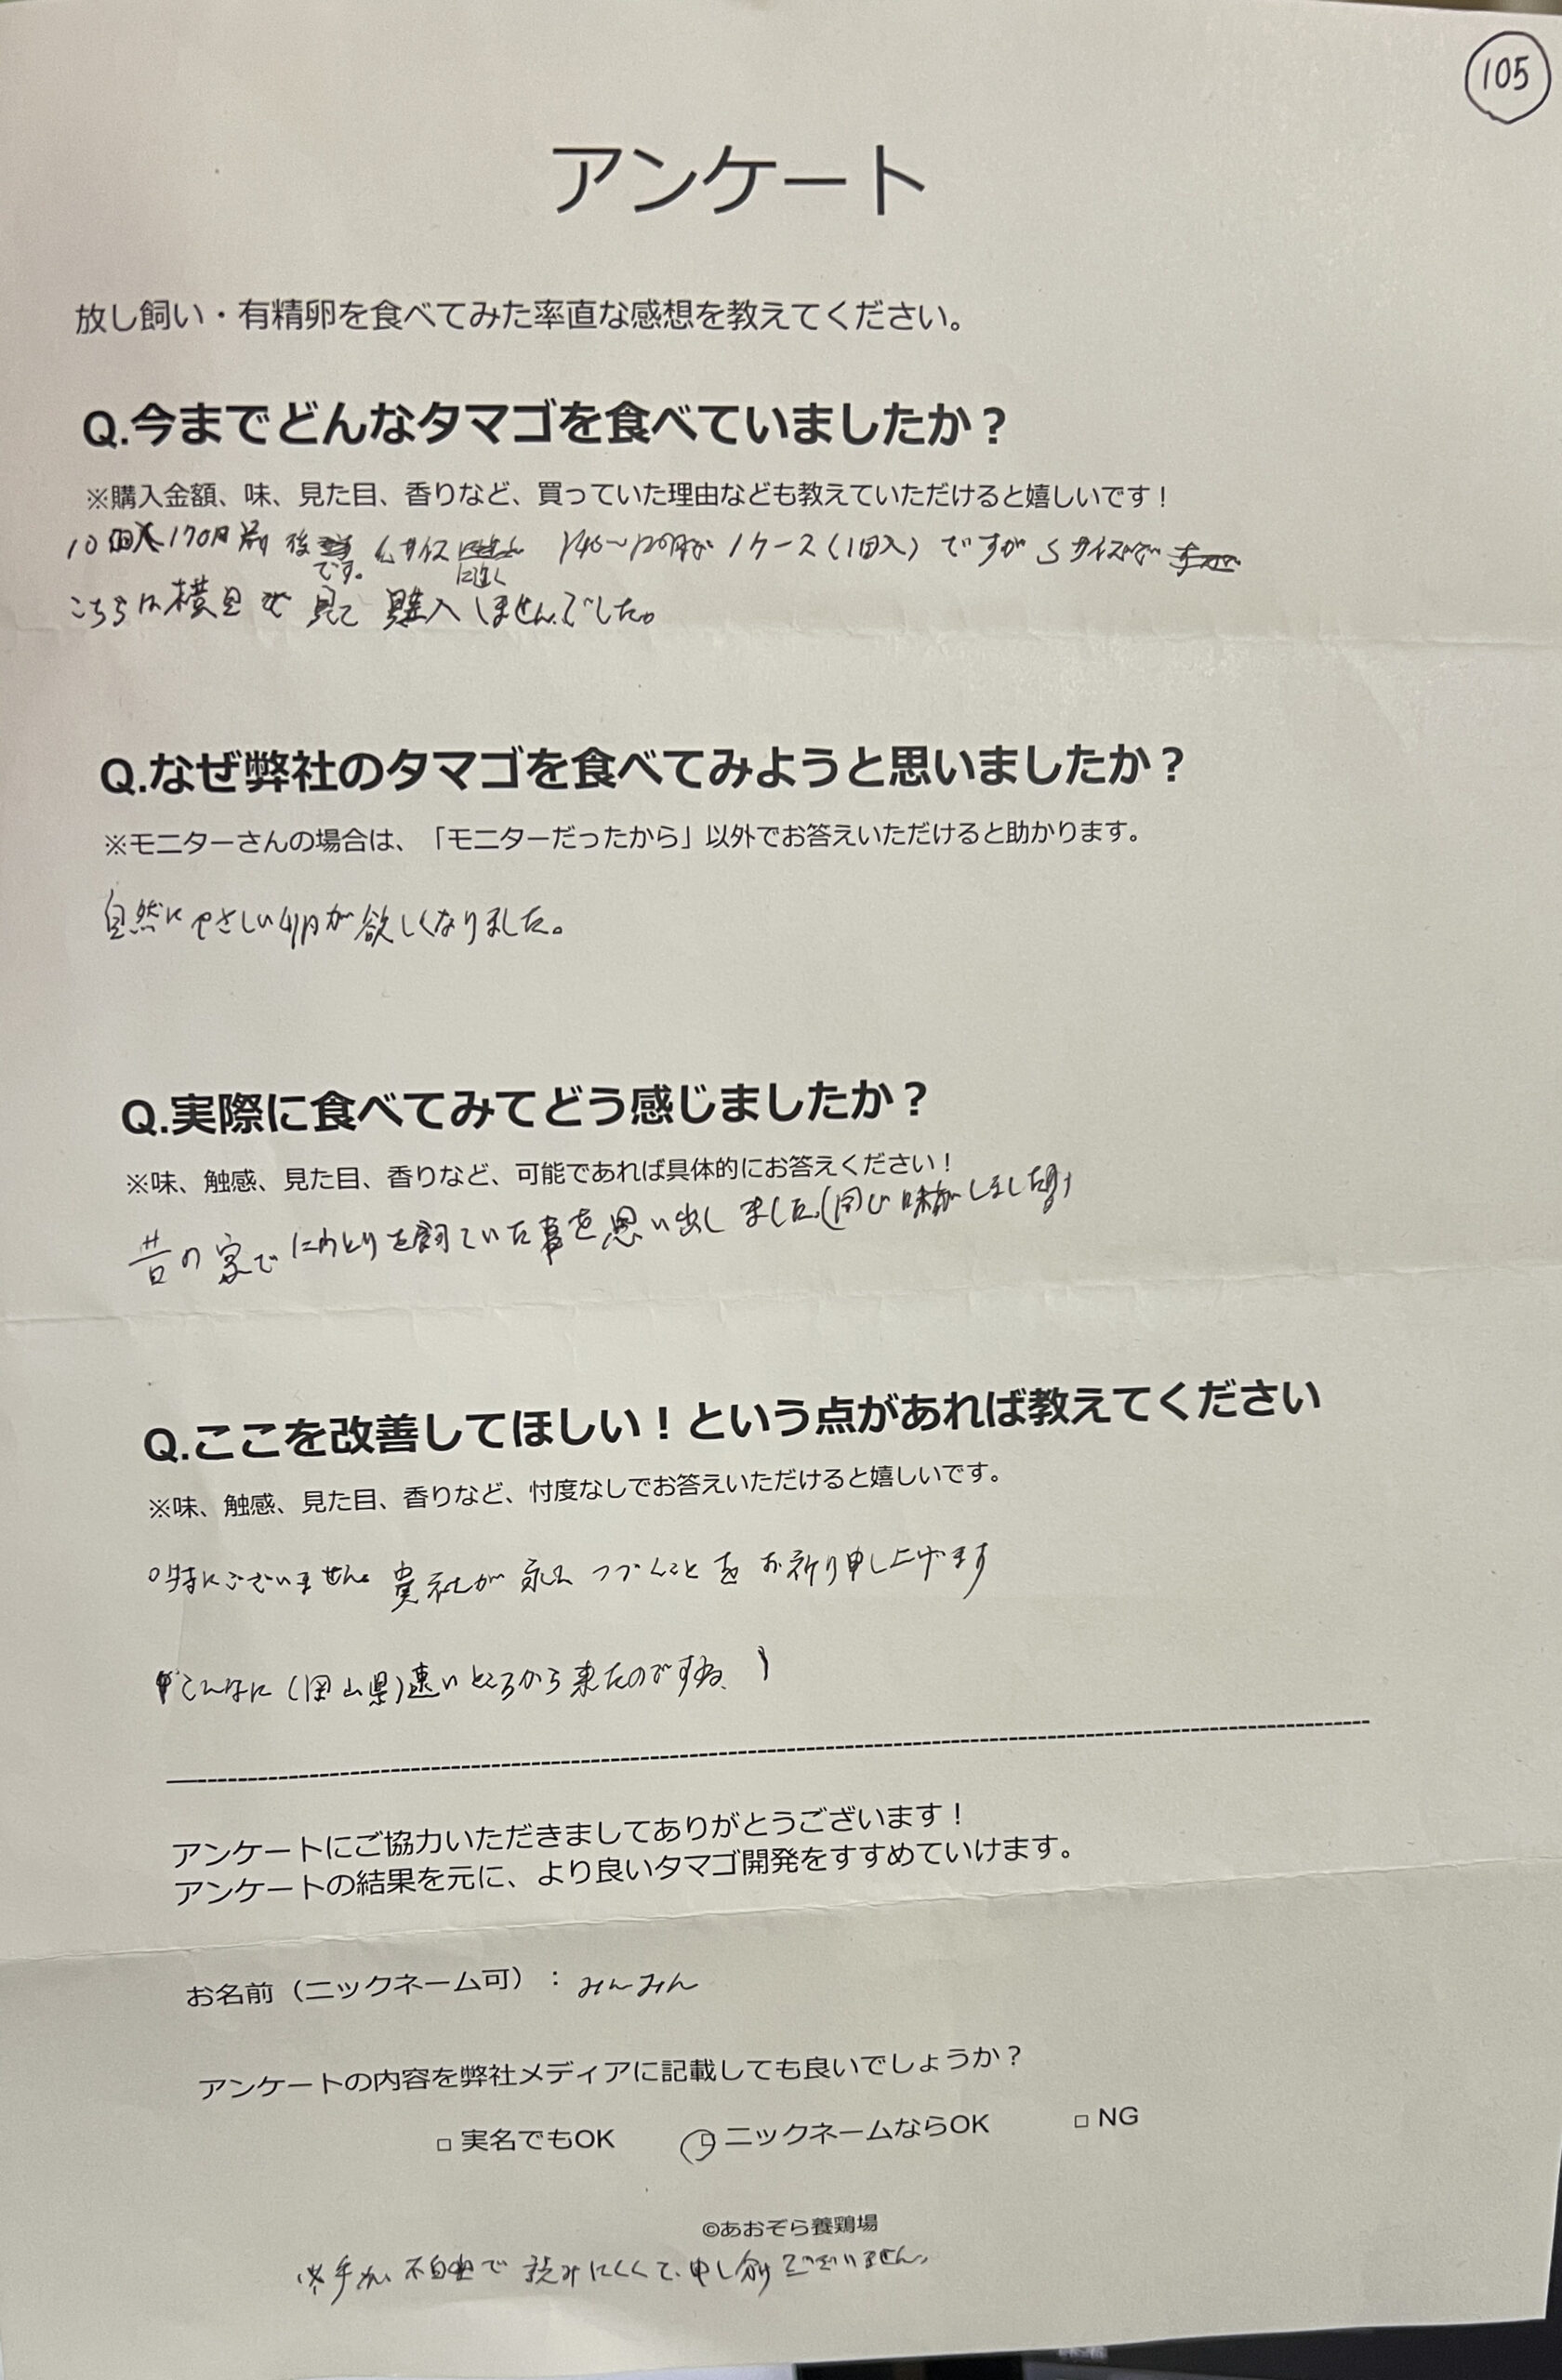 105
アンケート
放し飼い・有精卵を食べてみた率直な感想を教えてください。
Q.今までどんなタマゴを食べていましたか？
※購入金額、味、見た目、香りなど、買っていた理由なども教えていただけると嬉しいです！
10個入170円前後です。 Lサイズに近く 1ケース(10入)ですがSサイズで
こちらは横目で見て購入しませんでした。
Q.なぜ弊社のタマゴを食べてみようと思いましたか？
※モニターさんの場合は、「モニターだったから」以外でお答えいただけると助かります。
自然にやさしい卵が欲しくなりました。
Q.実際に食べてみてどう感じましたか？
※味、触感、見た目、香りなど、可能であれば具体的にお答えください！
昔の家でにわとりを飼ていた事を思い出しました。(同じ味がしました)
Q.ここを改善してほしい！という点があれば教えてください
※味、触感、見た目、香りなど、忖度なしでお答えいただけると嬉しいです。
○特にございません。貴社が永久つづくことをお祈り申し上げます
こんなに(岡山県)遠いところから来たのですね。
アンケートにご協力いただきましてありがとうございます！
アンケートの結果を元に、より良いタマゴ開発をすすめていけます。
お名前（ニックネーム可）：みんみん
アンケートの内容を弊社メディアに記載しても良いでしょうか？
□ 実名でもOK □ ニックネームならOK □ NG
©あおぞら養鶏場
※手が不自由で読みにくくて、申し訳ございません。